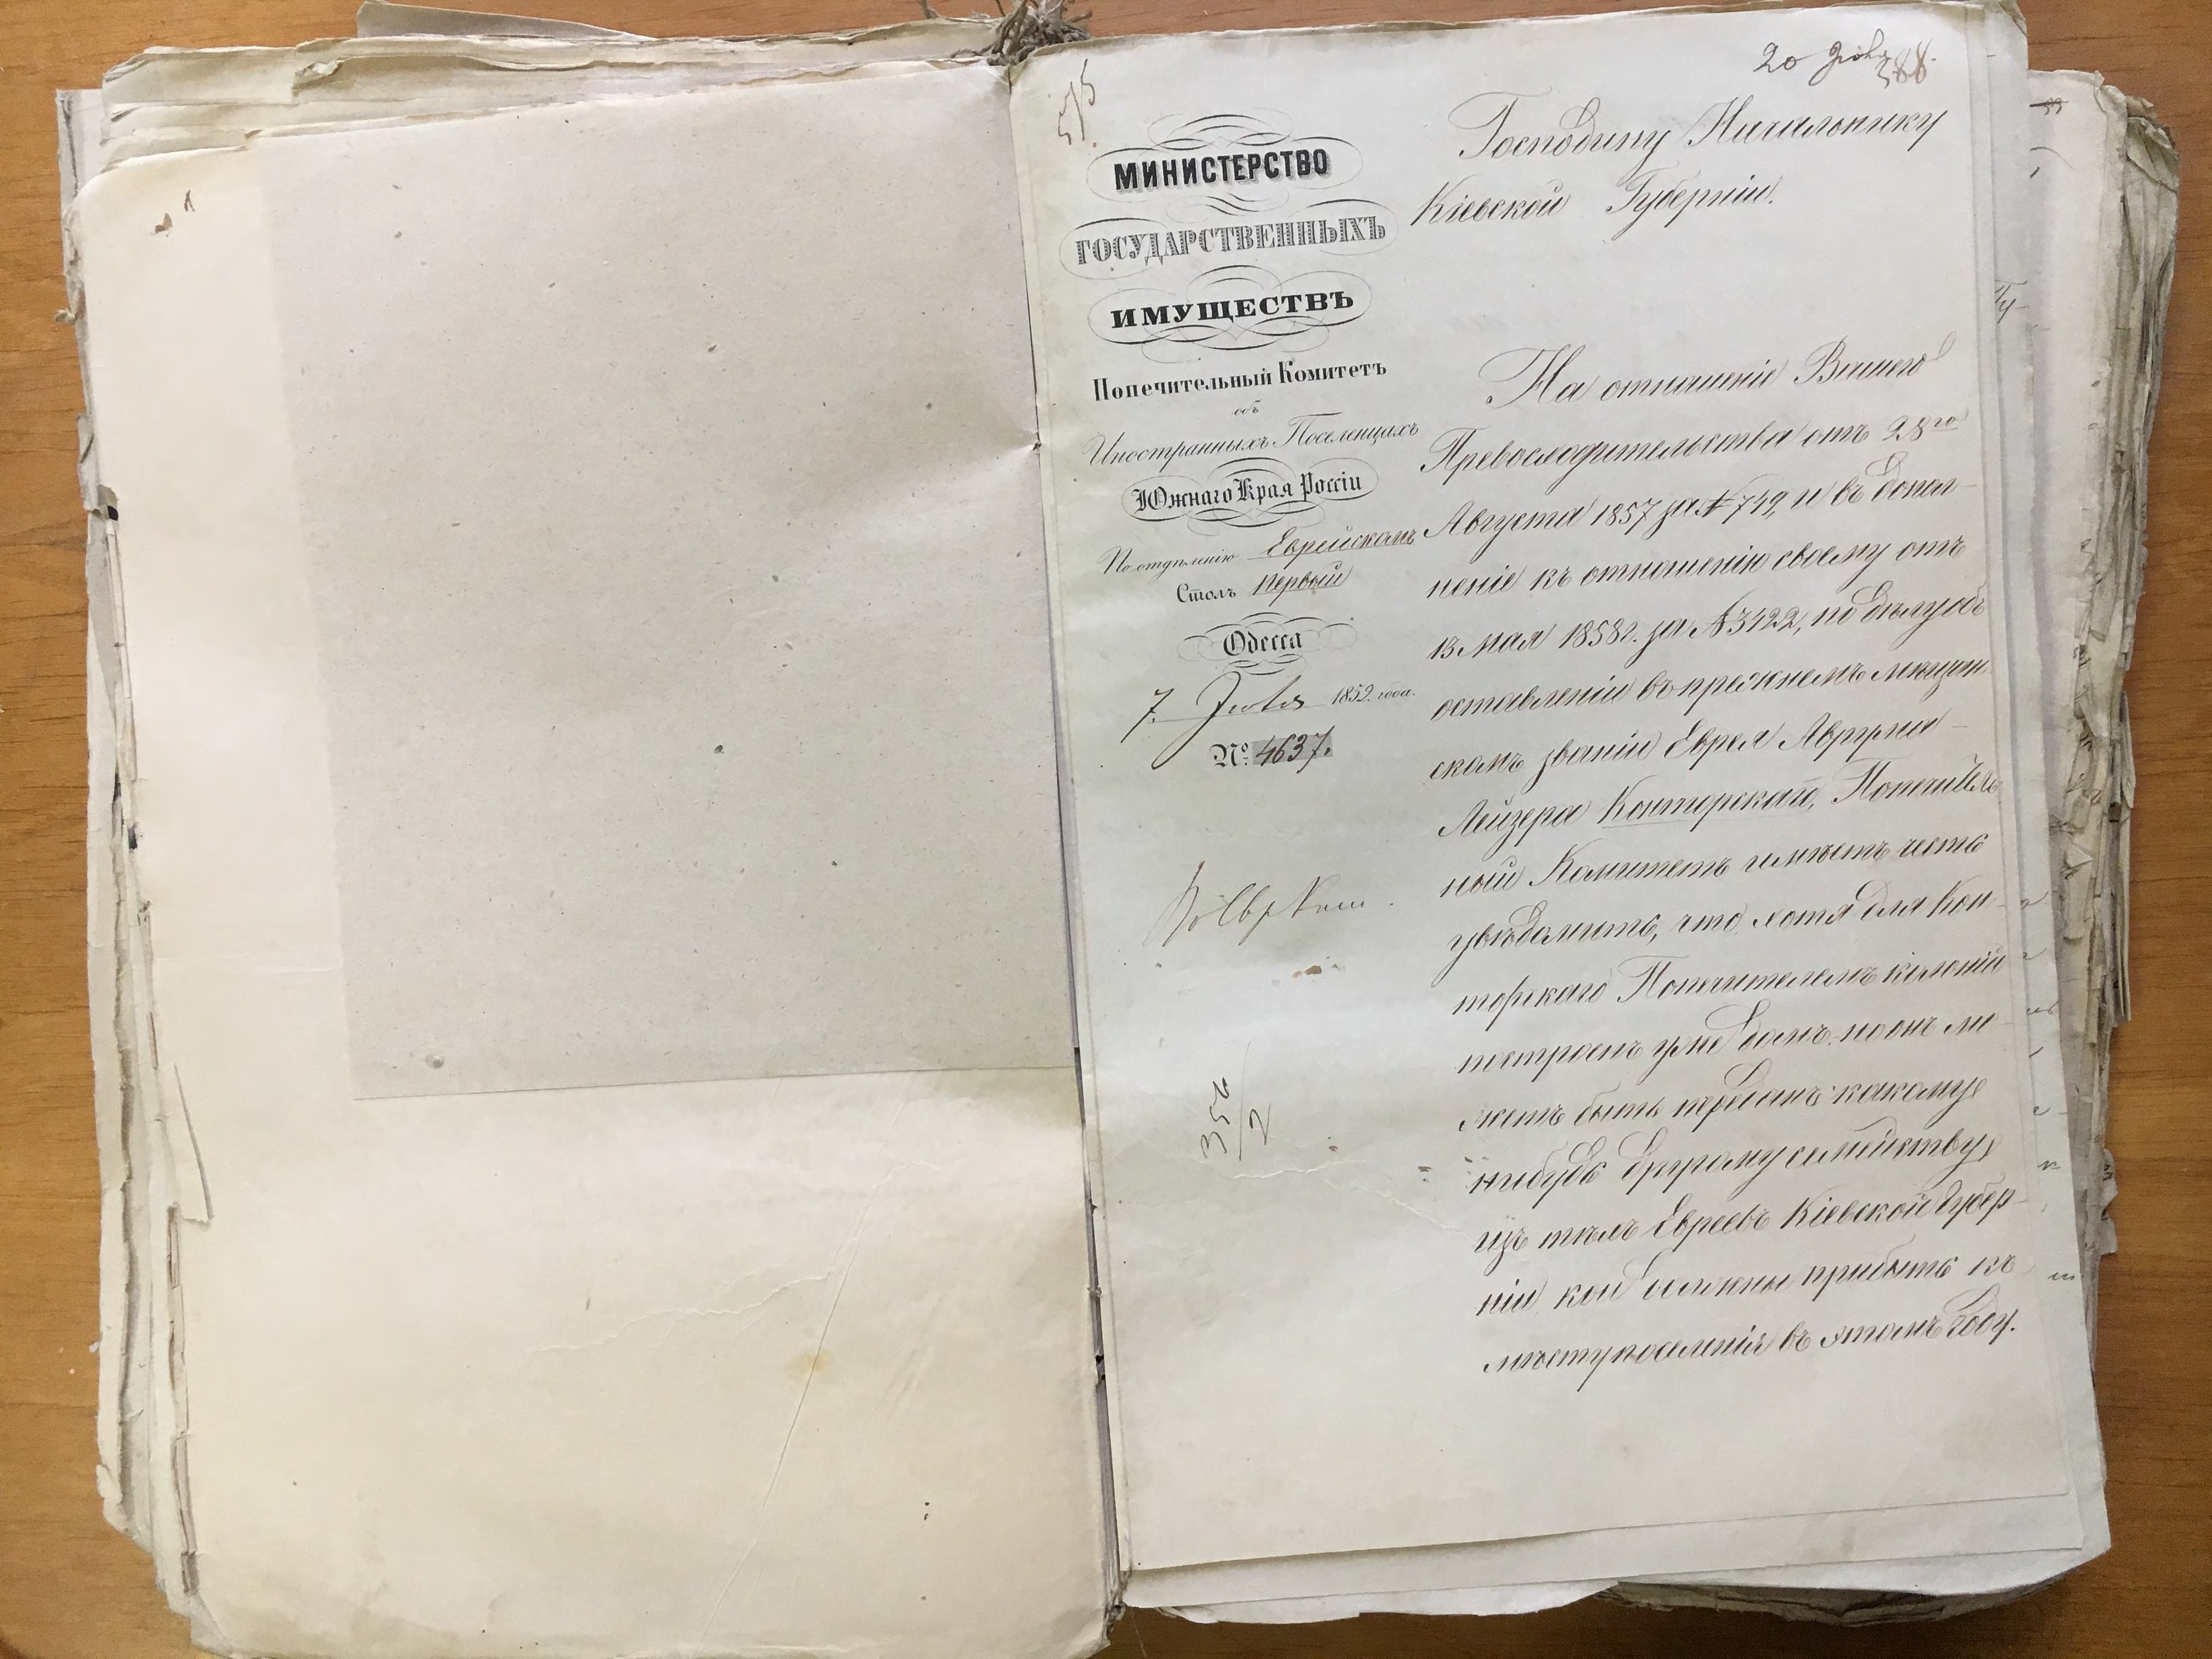 575
20 Іюля
388.
МИНИСТЕРСТВО
ГОСУДАРСТВЕННЫХЪ
ИМУЩЕСТВЪ
Попечительный Комитетъ
объ
Иностранныхъ Поселенцахъ
Южнаго Края Россіи
По отдѣленію Еврейскомъ
Столъ первый
Одесса
7. Іюля 1859. года.
№ 4637.
354/2
Господину Начальнику
Кіевской Губерніи.
На отношеніе Вашего
Превосходительства отъ 28го
Августа 1857 за № 749, и въ допол-
неніе къ отношенію своему отъ
13 мая 1858г. за № 3422, по дѣлу объ
оставленіи въ прежнемъ мѣщан-
скомъ званіи Еврея Аврума-
Лейзера Конторскаго, Попечитель-
ный Комитетъ имѣетъ честь
увѣдомить, что хотя для Кон-
торскаго Попечителемъ колоній
построенъ уже домъ, но онъ мо-
жетъ быть переданъ какому
нибудь другому семейству
изъ тѣхъ Евреевъ Кіевской Губер-
ніи, кои должны прибыть къ
мѣсту поселенія въ этомъ году.